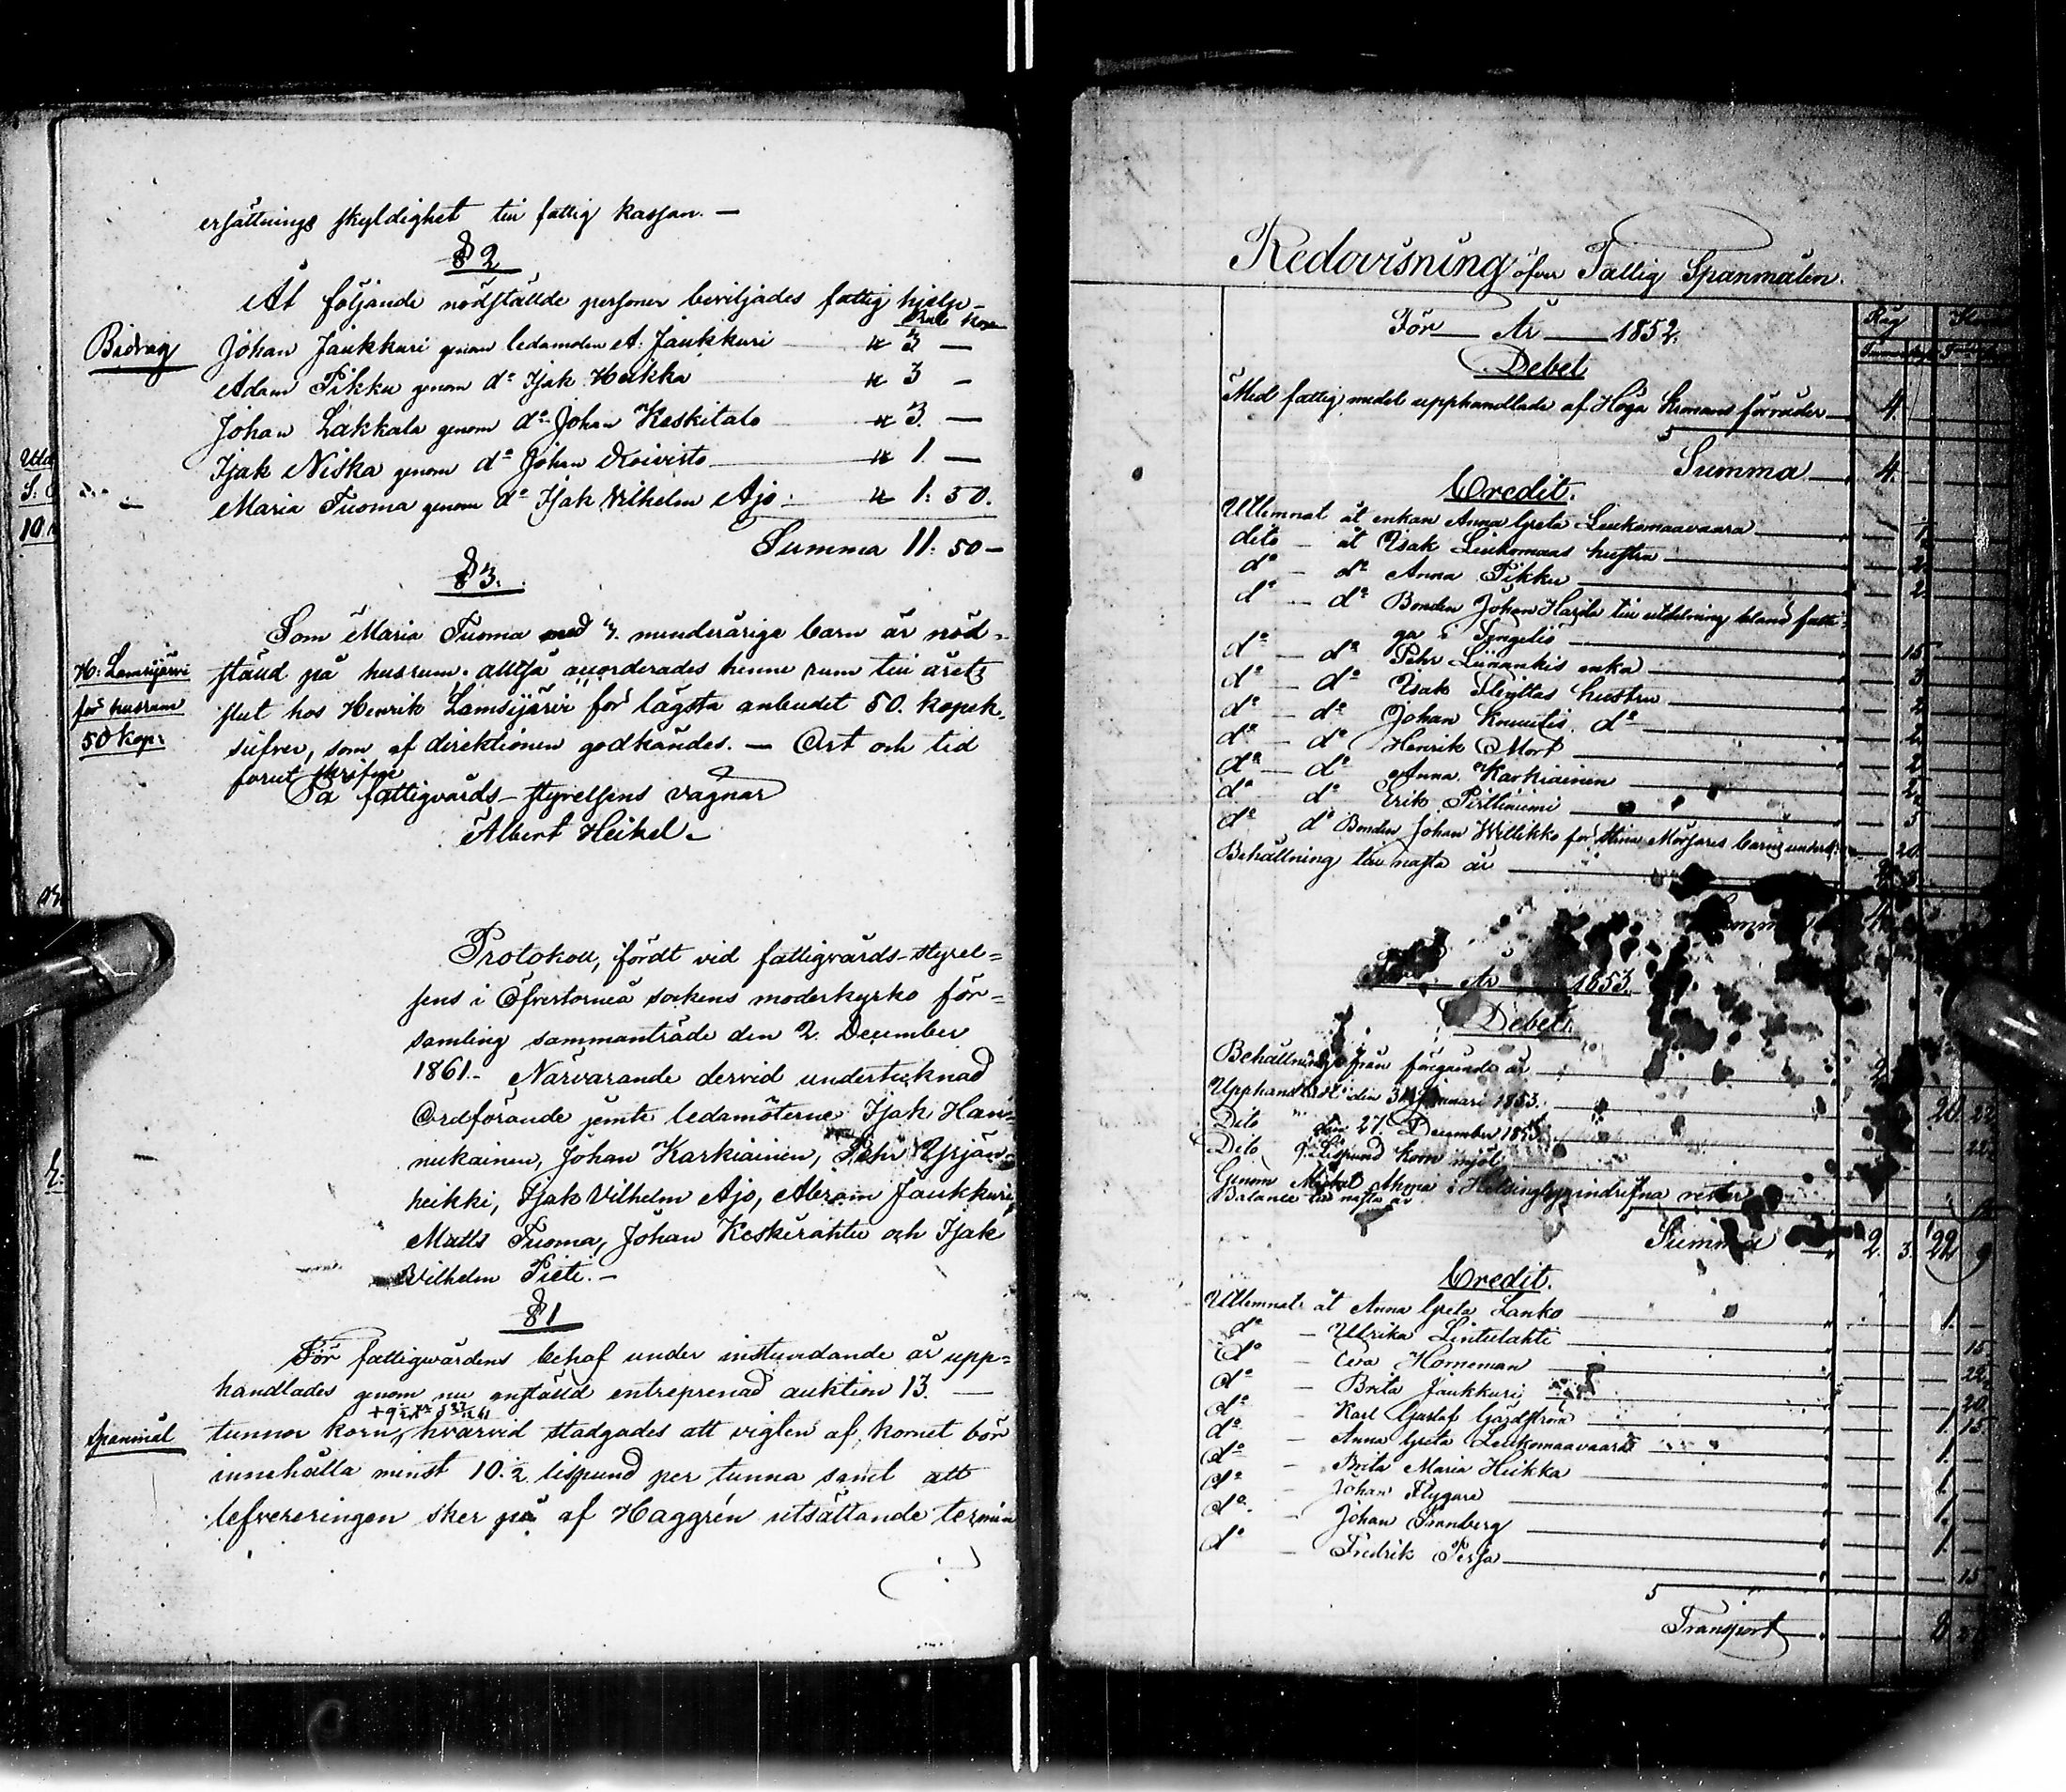 ersättnings skyldighet till fattig kassan. —
§ 2
Åt följande nödstälde personer beviljades fattig hjelp -
Rub. Kop.
Bidrag
Johan Jaukkuri genom ledamoten A. Jaukkuri " 3 —
Adam Pikku genom d:o Isak Heikka " 3 —
Johan Lakkala genom d:o Johan Keskitalo " 3. —
Isak Niska genom d:o Johan Koivisto " 1. —
Maria Tuoma genom d:o Isak Vilhelm Ajo: " 1: 50.
Summa 11: 50 —
§ 3.
Som Maria Tuoma med 3. minderåriga barn är nöd-
H: Lamsijärvi
för husrum
50 kop:
stäld på husrum, alltså ackorderades henne rum till årets
slut hos Henrik Lamsijärvi för lägsta anbudet 50. kopek.
silfver, som af direktionen godkändes. — Ort och tid
förut skrifne
På fattigvårds-styrelsens vägnar
Albert Heikel.
Protokoll, fördt vid fattigvårds-styrel-
sens i Öfvertorneå sockens moderkyrko för-
samling sammanträde den 2. December
1861. - Närvarande dervid undertecknad
Ordförande jemte ledamöterne Isak Han-
nukainen, Johan Karkiainen, Pehr Yrjän-
heikki, Isak Vilhelm Ajo, Abram Jaukkuri,
Matts Tuoma, Johan Keskirahtu och Isak
Vilhelm Pieti. —
§ 1
För fattigvårdens behof under instundande år upp-
handlades genom nu anstäld entreprenad auktion 13. —
Spanmål
tunnor korn, hvarvid stadgades att vigten af kornet bör
innehålla minst 10 ½ lispund per tunna samt att
lefvereringen sker på af Haggrén utsättande termin
Redovisning öfver Fattig Spanmålen.
För — År — 1852.
Råg
Debet
Med fattig medel upphandlade af Höga Kronans förråder — 4.
Summa — 4.
Credit.
Utlemnat åt enkan Anna Greta Leukomaavaara — 1.
dito — åt Isak Leukomaas hustru — 2.
d:o — d:o Anna Pikku — 2
d:o — d:o Bonden Johan Harila till utdelning bland fatti-
ga i Tengeliö — 15
d:o — d:o Pehr Liinankis enka — 3
d:o — d:o Isak Flyttas hustru — 2
d:o — d:o Johan Knuutis d:o — 2.
d:o — d:o Henrik Mort — 2
d:o — d:o Anna Karkiainen — 2.
d:o d:o Erik Pirttiniemi — 5
d:o d:o Bonden Johan Willikko för Stina Mörsares barns underh: — 20.
Behållning till nästa år — 2. 3.
År — 1853.
Debet.
Behållning från föregående år — 2
Upphandladt den 31 Januari 1853. — 20. 22
Dito " den 27. December 185
Dito 9 Lispund korn mjöl
Genom Michel Ahma i Helsingby indrifna rester
Balance till nästa år
Summa — 2. 3. 22 9
Credit.
Utlemnat åt Anna Greta Lanko — 1. —
d:o — Ulrika Lintulahti — 15
d:o — Eva Horneman — 22
d:o — Brita Jaukkuri — 20.
d:o — Karl Gustaf Gärdström — 1. 15
d:o — Anna Greta Leukomaavaara — 1. —
d:o — Brita Maria Heikka — 1. —
d:o — Johan Flygare — 1. —
d:o — Johan Granberg — 1. —
d:o — Fredrik Persa — 15
Transport — 8